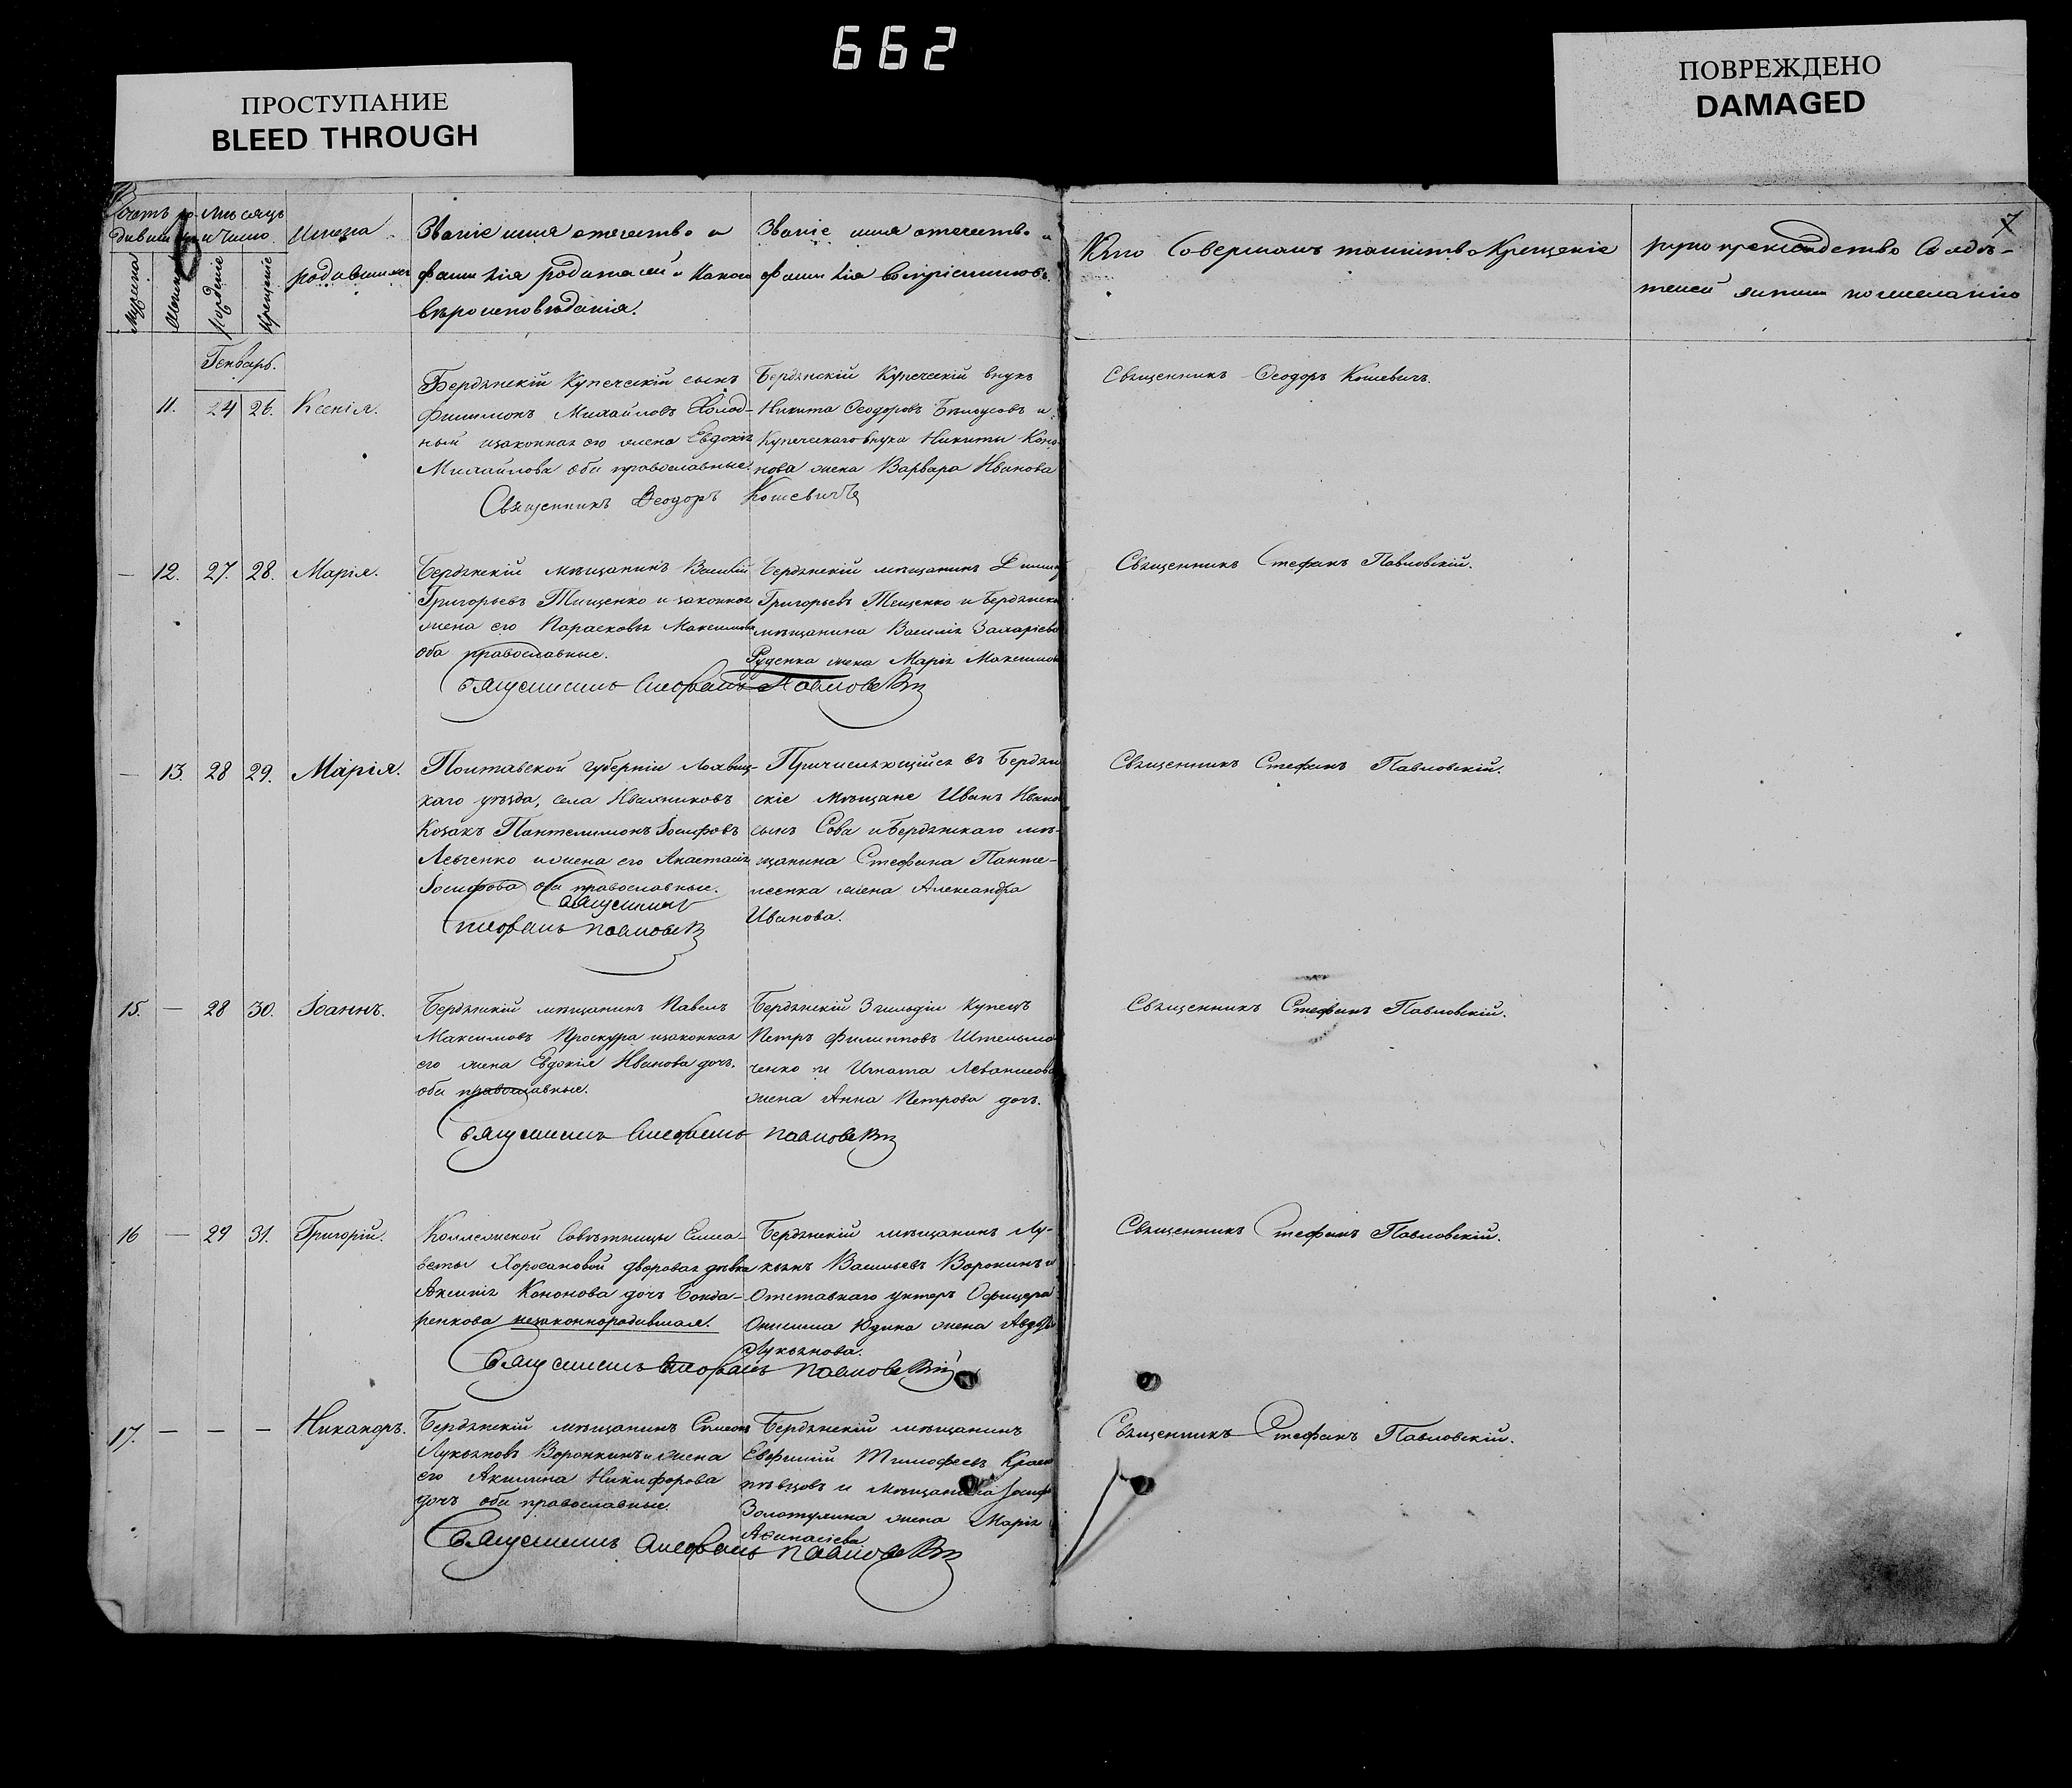 662
ПРОСТУПАНИЕ
BLEED THROUGH
ПОВРЕЖДЕНО
DAMAGED
7
Счетъ ро- мѣсяцъ
и число
Мужеска
Женска
рожденіе
крещеніе
Имена
родившихся
Званіе имя отечество и
фамилія родителей и какого
вѣроисповѣданія.
Званіе имя отечество и
фамилія воспріемниковъ.
Кто Совершалъ таинство Крещенія
рукоприкладство Свидѣ-
телей записи по желанію
Генварь.
11.
24
26.
Ксенія.
Бердянскій Купеческій сынъ
Филимонъ Михайловъ Холод-
ный изаконная его жена Евдокія
Михайлова оба православные
Священникъ Ѳеодоръ Кошевичъ
Бердянскій Купеческій внукъ
Никита Ѳеодоровъ Бѣлоусовъ и
Купеческаго внука Никиты Коно-
нова жена Варвара Иванова
Священникъ Ѳеодоръ Кошевичъ.
—
12.
27.
28.
Марія.
Бердянскій мѣщанинъ Василій
Григорьевъ Тищенко и законная
жена его Парасковья Максимова
оба православные.
Священникъ Стефанъ Павловскій
Бердянскій мѣщанинъ
Григорьевъ Тещенко и Бердянска
мѣщанина Василія Захаріева
Руденка жена Марія Максимова
Священникъ Стефанъ Павловскій.
—
13.
28
29.
Марія.
Полтавской губерніи Лохвиц-
каго уѣзда, села Ивахниковъ
Козакъ Пантелимонъ Іосифовъ
Левченко и жена его Анастасія
Іосифова оба православные.
Священникъ
Стефанъ Павловскій
Причисляющійся въ Бердян
скіе мѣщане Иванъ Ивано
сынъ Сова и Бердянскаго мѣ-
щанина Стефана Панте-
леенка жена Александра
Иванова.
Священникъ Стефанъ Павловскій.
15.
—
28
30.
Іоаннъ.
Бердянскій мѣщанинъ Павелъ
Максимовъ Проскура изаконная
его жена Евдокія Иванова дочь.
оба православные.
Священникъ Стефанъ Павловскій
Бердянскій 3 гильдіи Купецъ
Петръ Филипповъ Штельма
ченко и Игната
жена Анна Петрова дочь.
Священникъ Стефанъ Павловскій.
16
—
29
31.
Григорій.
Коллежской Совѣтницы Елиса-
веты Хоросановой дворовая дѣвка
Аксинія Кононова дочь Бонда-
ренкова незаконнородившая.
Священникъ Стефанъ Павловскій
Бердянскій мѣщанинъ Лу-
кьянъ Васильевъ Воронинъ и
Отставнаго унтеръ Офицера
Онисима Юдина жена Авдотья
Лукьянова.
Священникъ Стефанъ Павловскій.
17.
—
—
—
Никаноръ.
Бердянскій мѣщанинъ Симеонъ
Лукьяновъ Воронкинъ и жена
его Акилина Никифорова
дочь оба православные.
Священникъ Стефанъ Павловскій
Бердянскій мѣщанинъ
Евфимій Тимофеевъ Красно
пѣвцовъ и мѣщанина Іосифа
жена Марія
Аѳанасіева
Священникъ Стефанъ Павловскій.